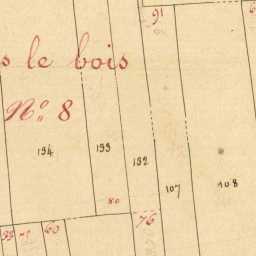 91
s le bois
Nº 8
134 133 132
107 108
80
76
60